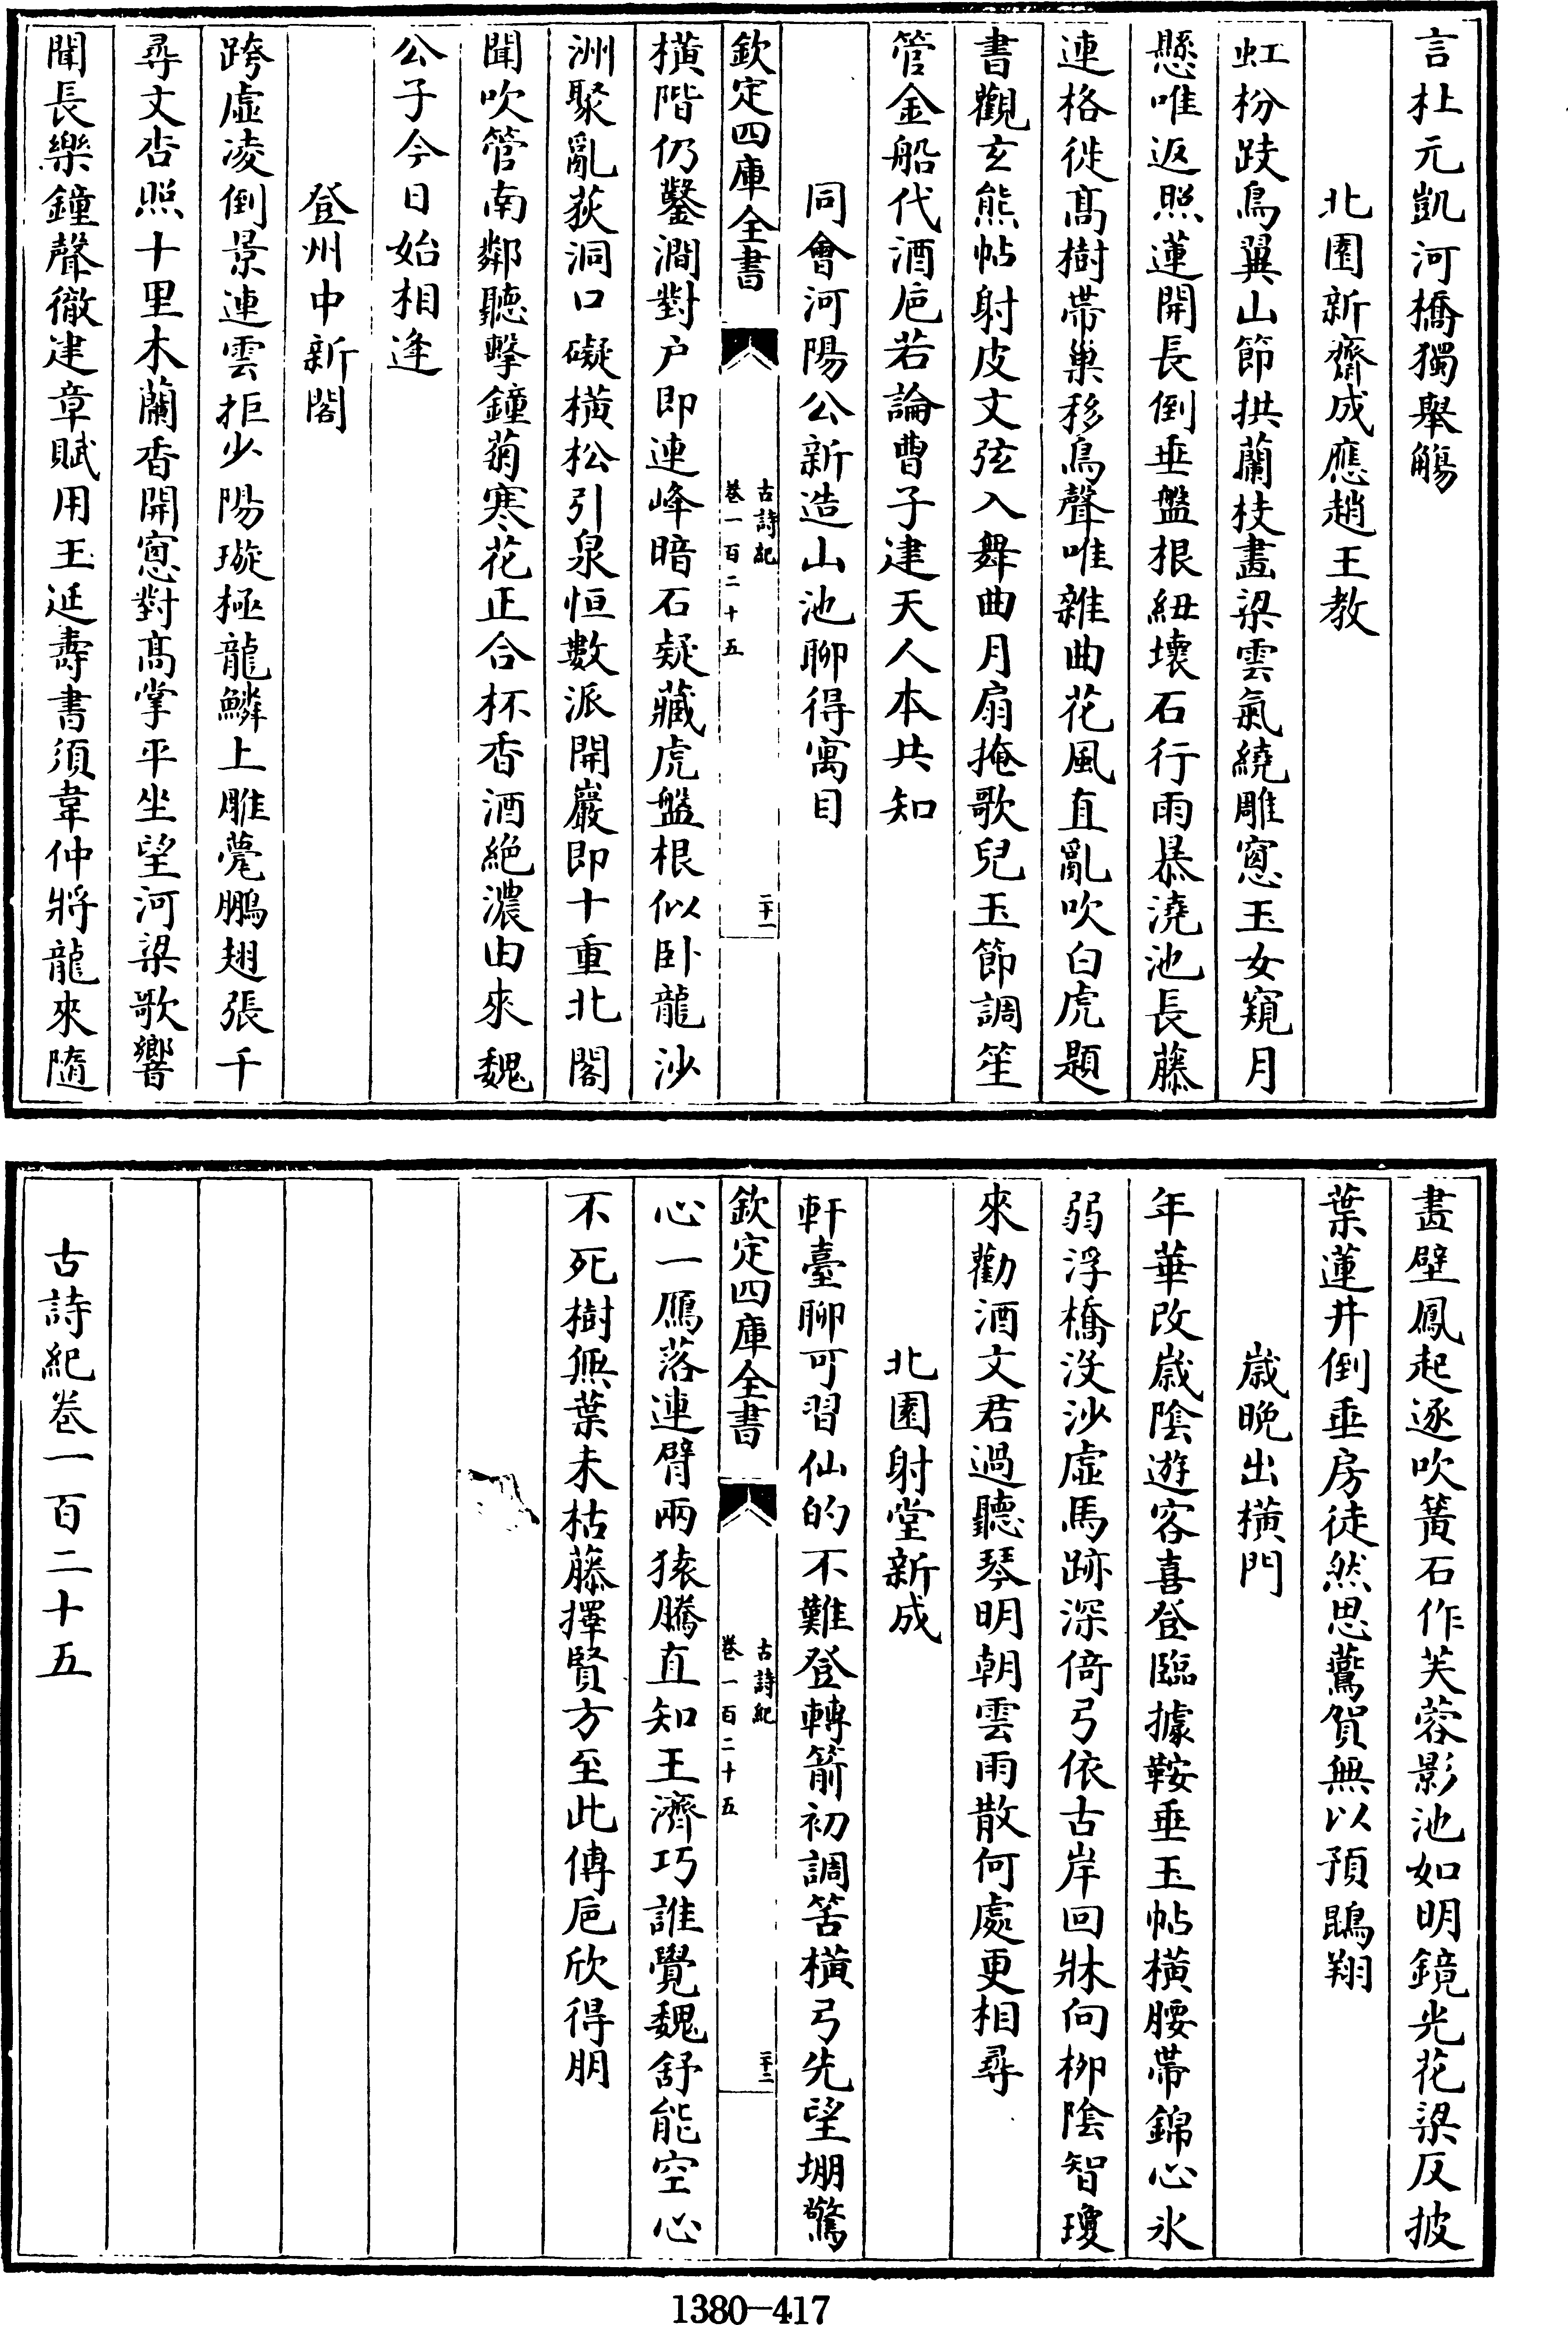 言杜元凱河橋獨舉觴
北園新齋成應趙王教
虹枌跂鳥翼山節拱蘭枝畫梁雲氣繞雕窻玉女窺月
懸唯返照蓮開長倒垂盤根紐壞石行雨暴澆池長藤
連格徙髙樹帶巢移鳥聲唯雜曲花風直亂吹白虎題
書觀玄熊帖射皮文弦入舞曲月扇掩歌兒玉節調笙
管金船代酒巵若論曹子建天人本共知
同會河陽公新造山池聊得寓目
欽定四庫全書
古詩紀
卷一百二十五
二十一
橫階仍鑿澗對户即連峰暗石疑藏虎盤根似卧龍沙
洲聚亂荻洞口礙橫松引泉恒數派開巖即十重北閣
聞吹管南鄰聽擊鐘菊寒花正合杯香酒絶濃由來魏
公子今日始相逢
登州中新閣
跨虛凌倒景連雲拒少陽璇極龍鱗上雕甍鵬翅張千
尋文杏照十里木蘭香開窻對髙掌平坐望河梁歌響
聞長樂鐘聲徹建章賦用王延壽書須韋仲將龍來隨
畫壁鳳起逐吹簧石作芙蓉影池如明鏡光花梁反披
葉蓮井倒垂房徒然思鷰賀無以預鵾翔
歳晚出橫門
年華改歳陰遊客喜登臨據鞍垂玉帖橫腰帶錦心氷
弱浮橋没沙虛馬跡深倚弓依古岸回牀向栁陰智瓊
來勸酒文君過聽琴明朝雲雨散何處更相尋
北園射堂新成
軒臺聊可習仙的不難登轉箭初調筈橫弓先望堋驚
欽定四庫全書
古詩紀
卷一百二十五
二十二
心一鴈落連臂兩猿騰直知王濟巧誰覺魏舒能空心
不死樹無葉未枯藤擇賢方至此傅巵欣得朋
古詩紀卷一百二十五
1380-417